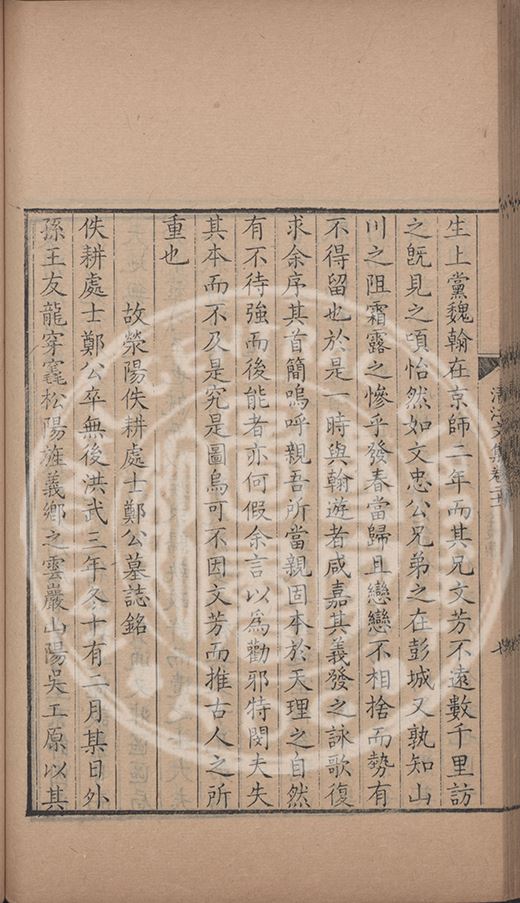 生上黨魏翰在京師二年而其兄文芳不遠數千里訪
之旣見之頃怡然如文忠公兄弟之在彭城又孰知山
川之阻霜露之慘乎發春當歸且戀戀不相捨而勢有
不得留也於是一時與翰遊者咸嘉其義發之詠歌復
求余序其首簡嗚呼親吾所當親固本於天理之自然
有不待強而後能者亦何假余言以爲勸邪特閔夫失
其本而不及是究是圖烏可不因文芳而推古人之所
重也
故滎陽佚耕處士鄭公墓誌銘
佚耕處士鄭公卒無後洪武三年冬十有二月某日外
孫王友龍穿竁松陽旌義鄉之雲巖山陽吳工原以其